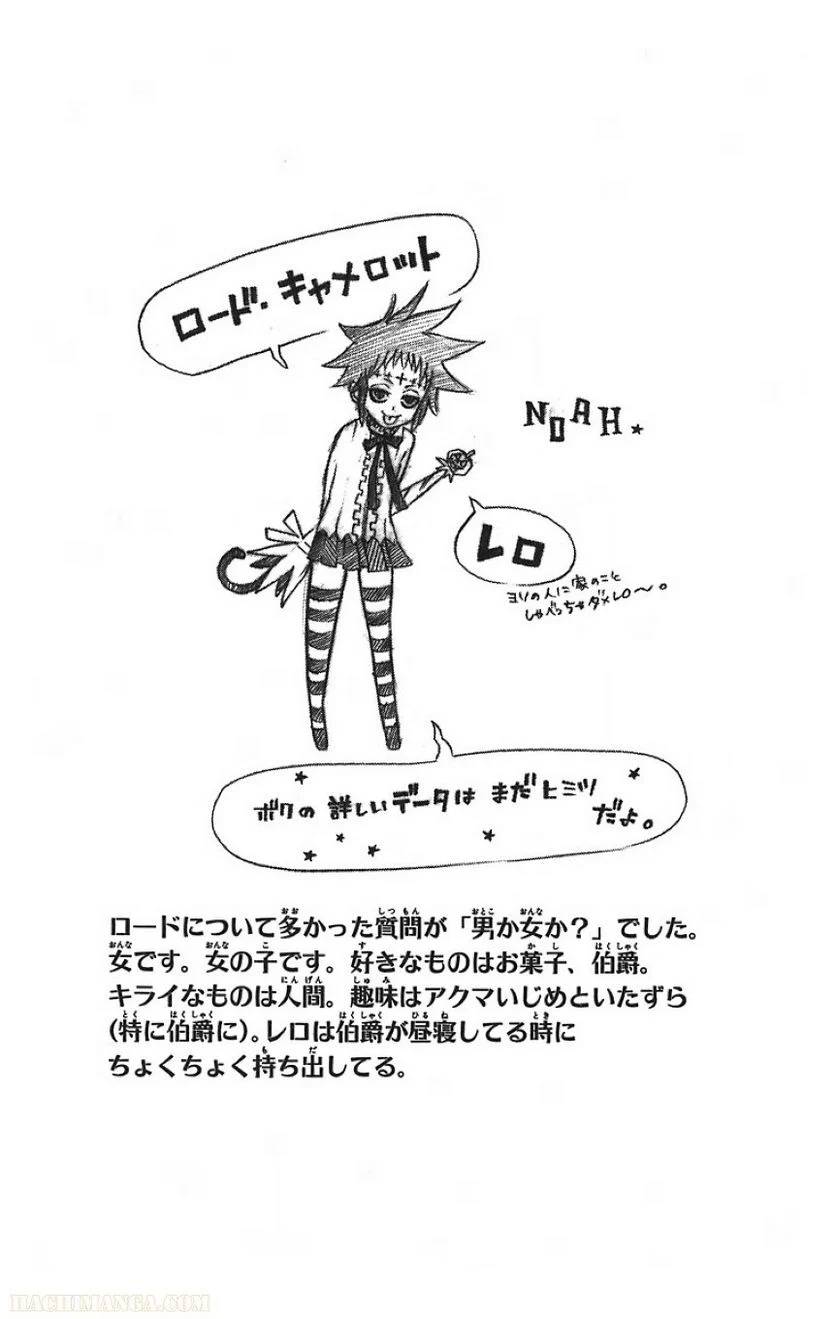 ロード・キャメロット
NOAH.
レロ
ヨソの人に家のこと
しゃべっちゃダメレロ〜。
ボクの詳しいデータは まだヒミツ
だよ。
ロードについて多かった質問が「男か女か？」でした。
女です。女の子です。好きなものはお菓子、伯爵。
キライなものは人間。趣味はアクマいじめといたずら
(特に伯爵に)。レロは伯爵が昼寝してる時に
ちょくちょく持ち出してる。
HACHIMANGA.COM